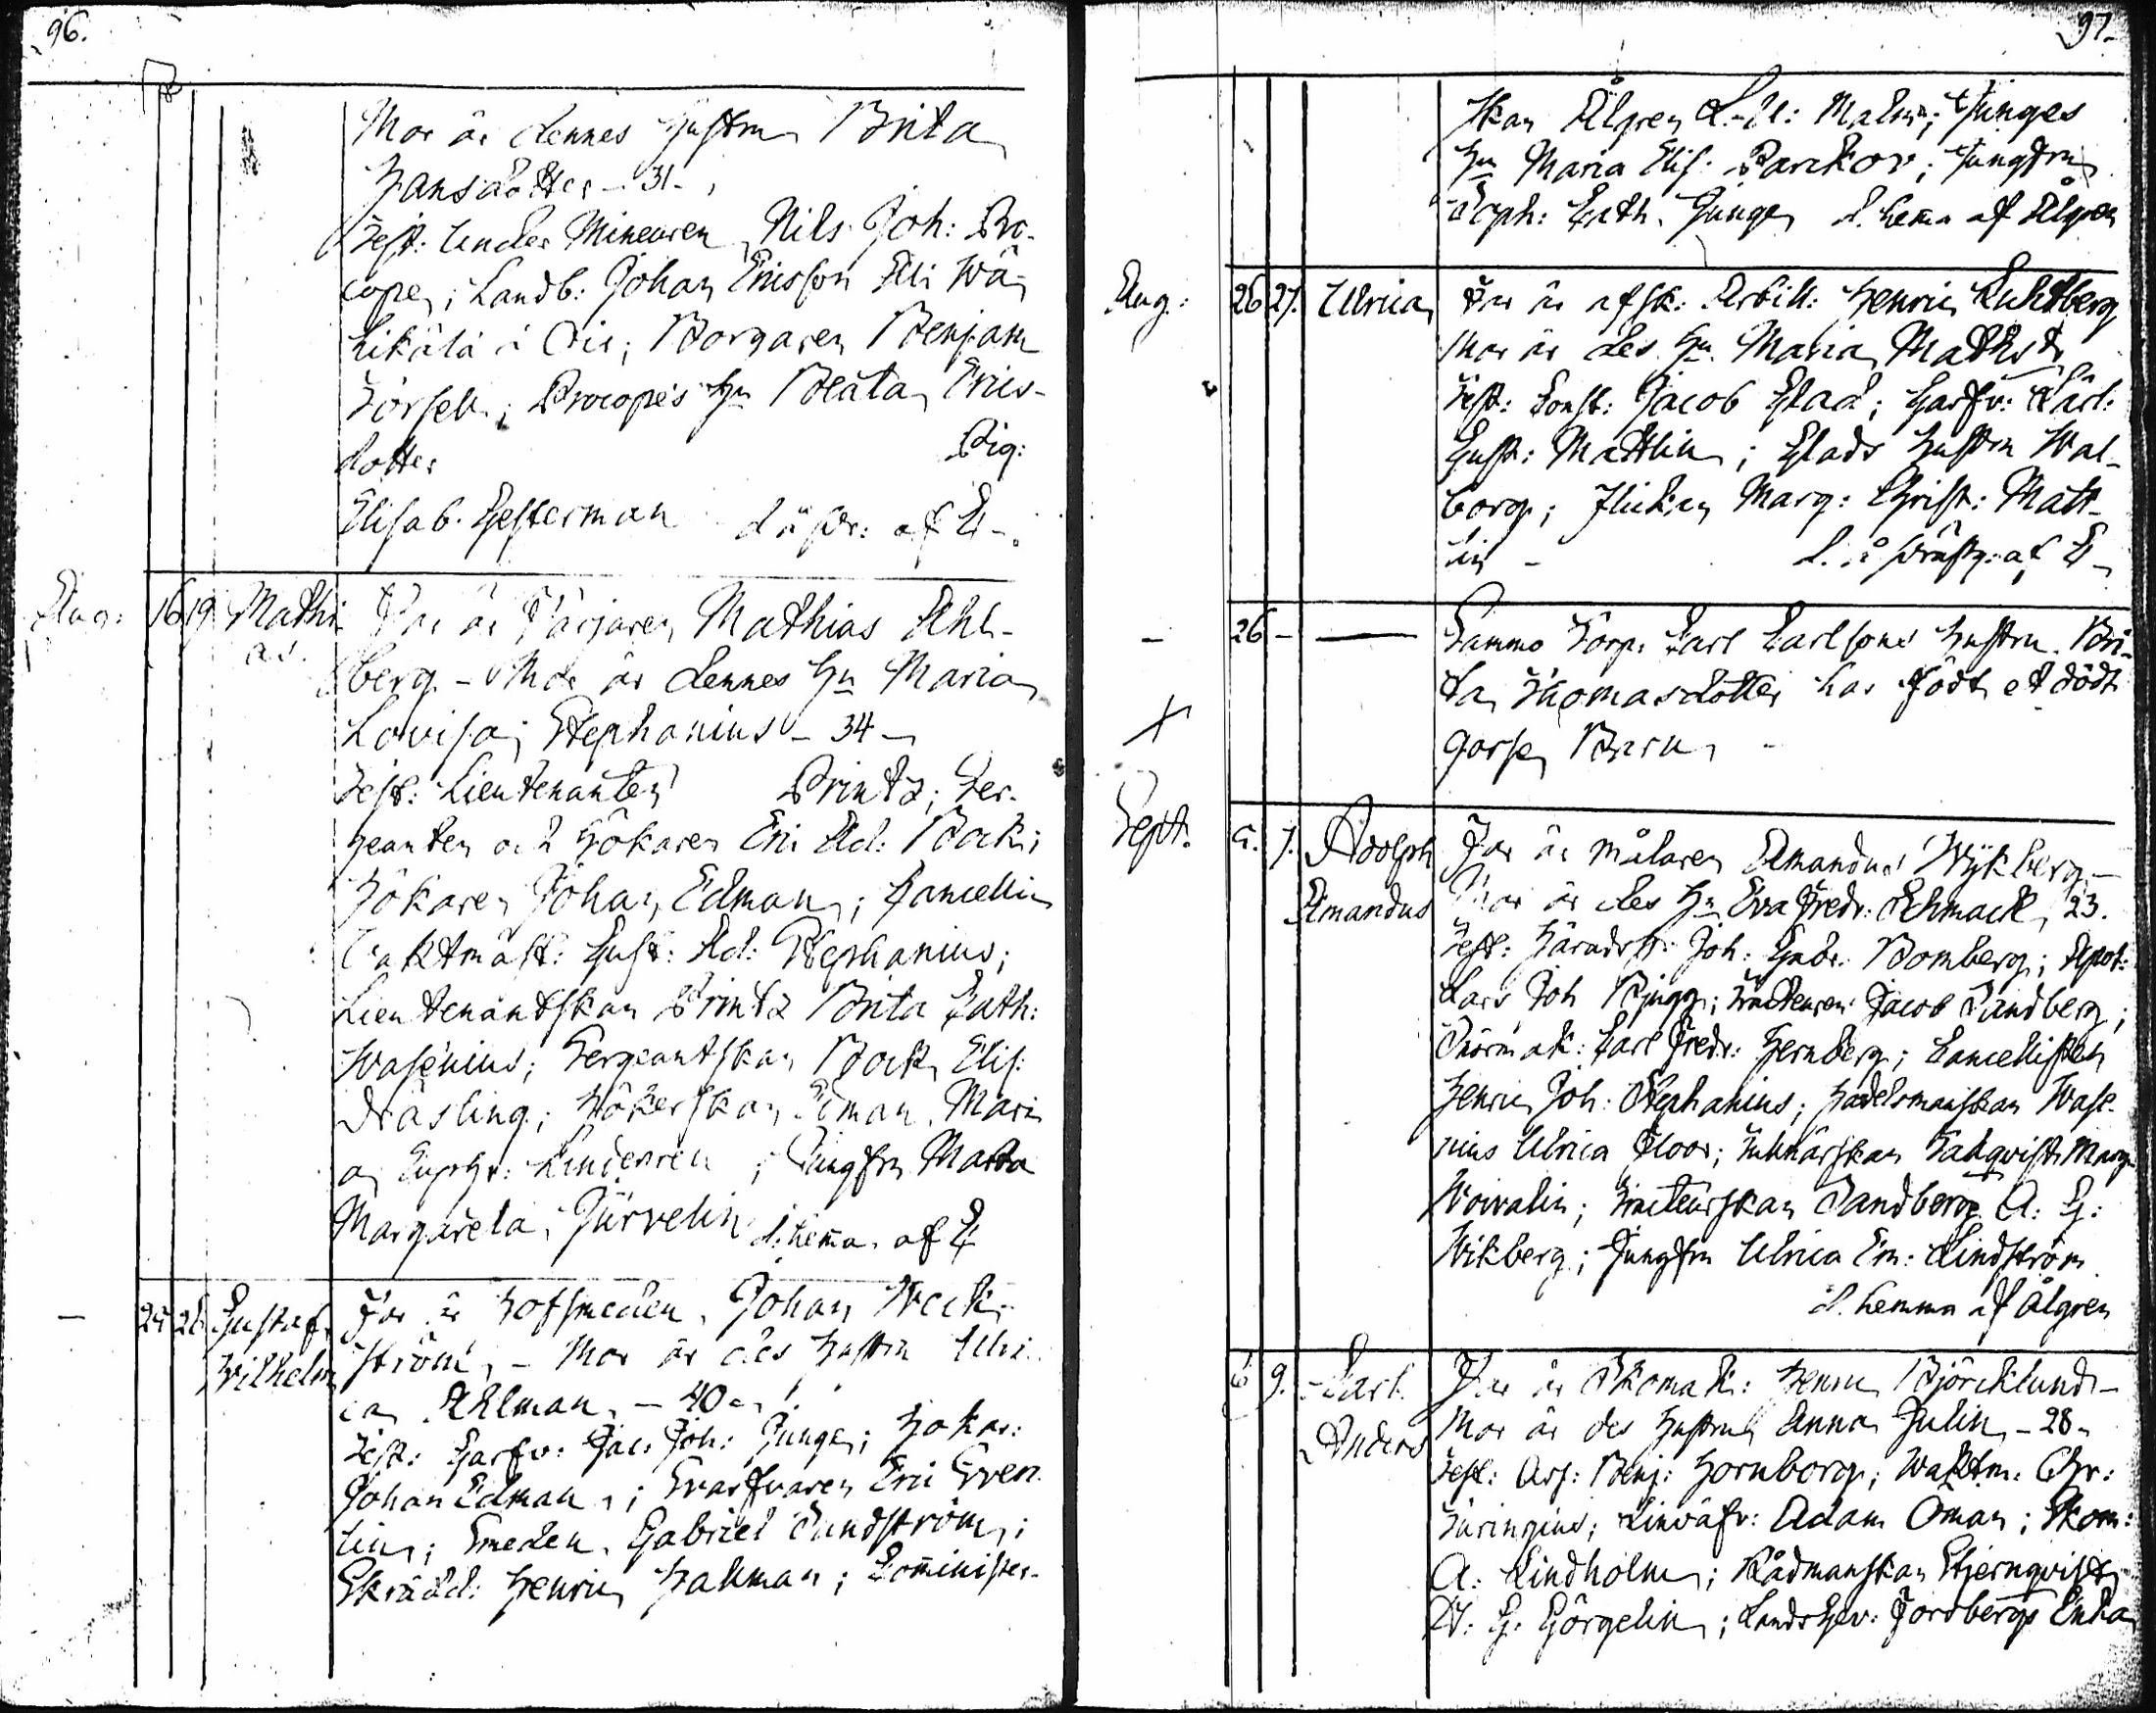 96.
Mor är dennes Hustru Brita
Hansdotter - 31 -
Test: Under Mineuren Nils Joh: Pro-
cope; Landb: Johan Ericsson Uli Wä-
likälä i Borgaren Benjam
Törsell; Procopes Hu Beata Erics-
dotter Pig:
Elisab. Gesterman döpr: af E-
Aug: 16 19 Mathi Far är Färjaren Mathias Ahl-
as. berg - Mor är dennes Hu Maria
Lovisa Stephanius - 34 -
Test: Lieutenanten Printz; Ser-
geanten och Hökaren Eric Ad: Bock;
Hökaren Johan Edman; Cancellie
Vaktmäst: Gust: Ad: Stephanius;
Lieutenantskan Printz Brita Cath:
Wasenius; Sergeantskan Bock Elis:
Dräsling; Hökerskan Edman Mari
a Euphr: ; Jungfru Marta
Margareta Jürvelin d. hema af E
- 25 26 Gustaf Far är Hofsmeden Johan Weck-
Wilhelm ström, - Mor är des Hustru Ulri
ca Ahlman - 40 -
Test: Garfv: Jac: Joh: Junge; Hökar:
Johan Edman; Svarfvaren Eric Sven
lin; Smeden Gabriel Sundström;
Skrädd: Henric Hallman; Comminister-
97.
skan Ålgren L. U: Malm; Junges
Hu Maria Elis: Parckor; Jungfru
Soph: Cath. Junge d. hema af Ålgren
Aug: 26 27. Ulrica Far är afsk: Artill: Henric
Mor är des Hu Maria Mathsdr
Test: Const: Jacob Glad; Garfv: Carl:
Gust: Mattlin; Glads Hustru Wal-
borg; Flickan Marg: Christ: Matt-
lin - d. i prästg: af E -
- 26 - Samma Korp. Carl Carlsons Hustru Bri-
ta Thomasdotter har födt et dödt
Gosse Barn
Sept. 5. 7. Adolph Far är målaren Amandus Wykberg -
Amandus Mor är des Hu Eva Fredr: Schmack 23.
Test: Häradsskr: Joh: Gabr: Bomberg; Apot:
Lars Joh Bjugg; Tracteuren Jacob Sandberg;
Snörmak: Carl Fredr: Hernberg; Cancellisten
Henric Joh: Stephanius; Hadelsmanskan Wase-
nius Ulrica Floor; Tullnärskan Tahqvist Marg
Woivalin; Tracteurskan Sandberg A: G:
Wikberg; Jungfru Ulrica Em: Lindström
d. hemma af Ålgren
6 9. Carl Far är Skomak: Henric Björcklund -
Anders Mor är des Hustru Anna Julin - 28 -
Test: Ass: Benj: Hornborg; Waktm: Chr:
Türingius; Linväfv: Adam Öman; Skom:
A: Lindholm; Rådmanskan Stjernqvist
H: G: Görgelin; Landsgev: Forsbergs Enka